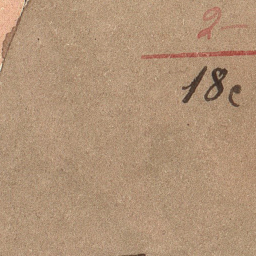 2-
18c